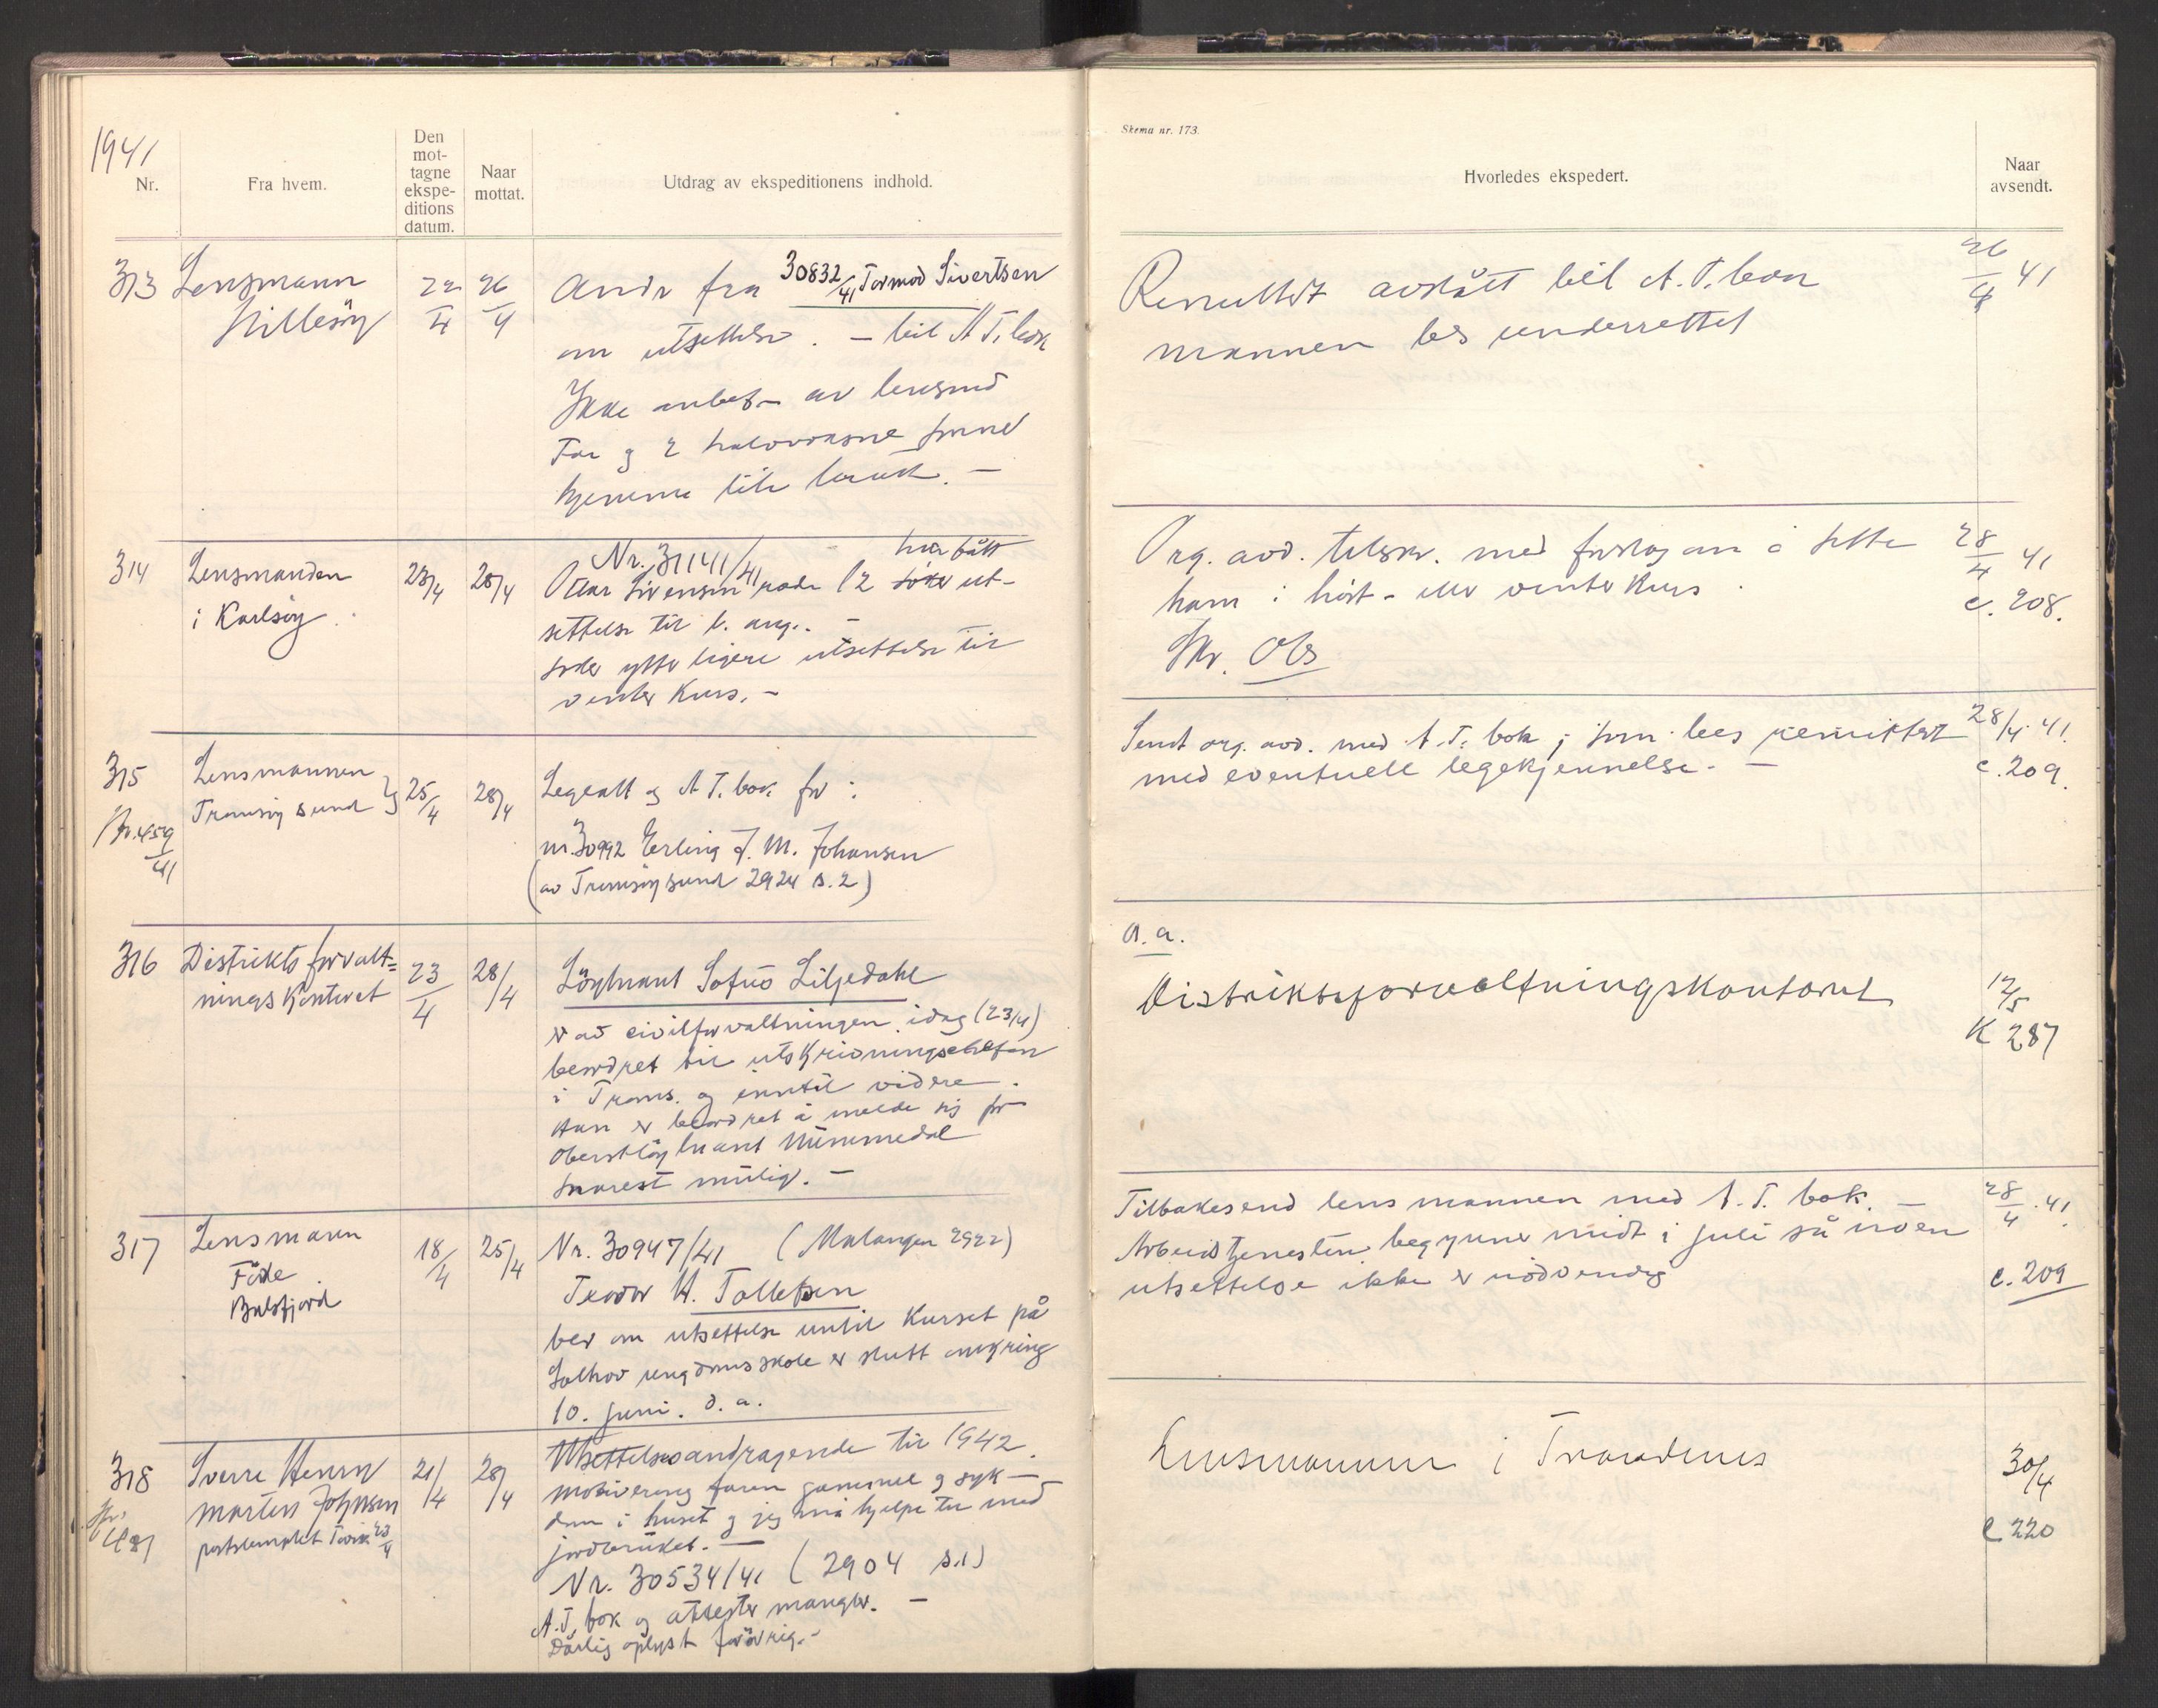 1941
Nr.
Fra hvem.
Den
mot-
tagne
ekspe-
ditions
datum.
Naar
mottat.
Utdrag av ekspeditionens indhold.
313 Lensmann
Hillesøy
22/4 26/4
Andr fra 30832/41 Tormod Sivertsen
om utsettelse. — bil A.T. bok
Ikke anbef— av lensmd
Far g 2 halvvoksne
hjemme
314 Lensmanden
i Karlsøy
23/4 28/4
Nr. 31141/41 har fått
rode 12 søker ut-
settelse til
søker ytterligere utsettelse til
vinter kurs. —
315 Lensmannen
Tromsøysund
Nr. 459/41
25/4 28/4
Legeatt og A.T. bok for :
nr. 30992 Erling J. M. Johansen
(av Tromsøysund 2924 s. 2)
316 Distriktsforvalt=
ningskontoret
23/4 28/4
Löytnant Sofus Liljedahl
er av civilforvaltningen idag (23/4)
beordret til utskrivningschefen
i Troms. og inntil videre.
Han er beordret å melde sig for
Oberstløytnant Nummedal
snarest mulig. —
317 Lensmann
Balsfjord
18/4 25/4
Nr. 30947/41 (Malangen 2922)
Teodor H. Tollefsen
ber om utsettelse inntil kurset på
Solhov ungdomsskole er slutt omkring
10. juni. d. a.
318 Sverre Henry
Martin Johnsen
poststemplet 23/4
21/4 28/4
Utsettelsesandragende til 1942.
Motivering faren gammel og syk—
dom i huset og jeg må hjelpe til med
jordbruket. —
Nr. 30534/41 (2904 s. 1)
A.T. bok og attester mangler. —
Dårlig oplyst forøvrig. -
Skema nr. 173.
Hvorledes ekspedert.
Naar
avsendt.
avslått bil A.T. bok
mannen bes underrettet
26/4 41
Org. avd. tilskr. med forslag om å sette
ham i høst- eller vinterkurs.
Skr. Obs
28/4 41
c. 208.
Sendt org. avd. med A.T. bok, som bees remittert
med eventuell legekjennelse. —
28/4. 41.
c. 209.
a. a.
Distriktsforvaltningskontoret
12/5
K 287
Tilbakesend lensmannen med A.T. bok. —
Arbeidstjenesten begynner midt i juli så noen
utsettelse ikke er nødvendig
28/4. 41.
c. 209
Lensmannen i Trondenes
30/4
c 220